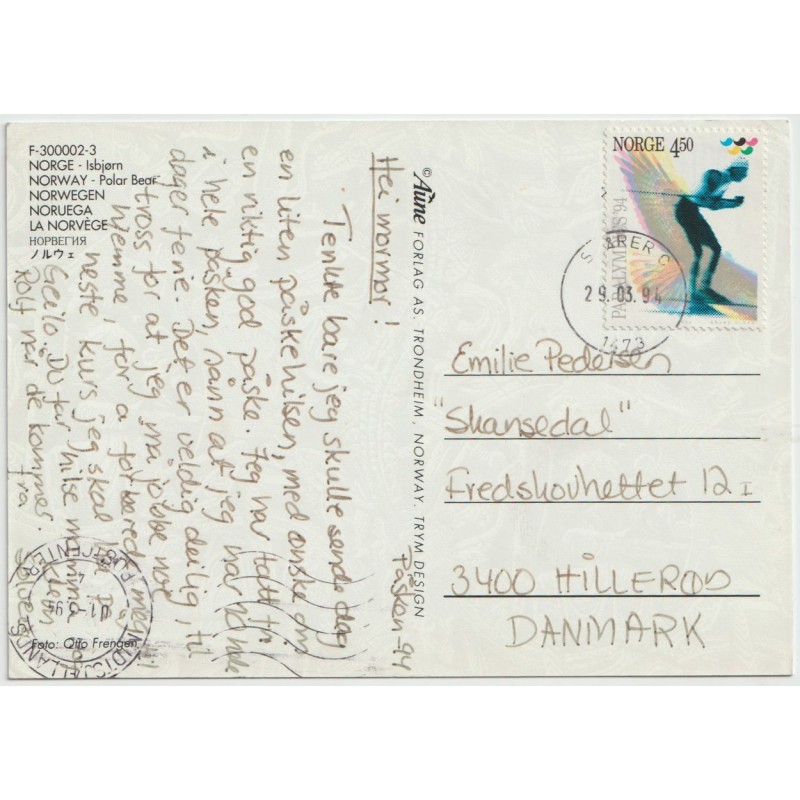 F-300002-3
NORGE - Isbjørn
NORWAY - Polar Bear
NORWEGEN
NORUEGA
LA NORVÈGE
НОРВЕГИЯ
ノルウェ
Påsken -94
Hei mormor!
Tenkte bare jeg skulle sende deg
en liten påskehilsen, med ønske om
en riktig god påske. Jeg har tatt fri
i hele påsken, sånn at jeg har ni
dager ferie. Det er veldig deilig, til
tross for at jeg må jobbe noe
hjemme, for å forberede meg til
neste kurs jeg skal på
Geilo. Du får hilse mamma og
Rolf når de kommer.
fra
Foto: Otto Frengen
© Aune FORLAG AS, TRONDHEIM, NORWAY. TRYM DESIGN
NORGE 450
PARALYMPICS '94
29.03.94
1473
Emilie Pedersen
"Skansedal"
Fredskovhettet 12 I
3400 HILLERØD
DANMARK
NORDSJÆLLANDS
POSTCENTER